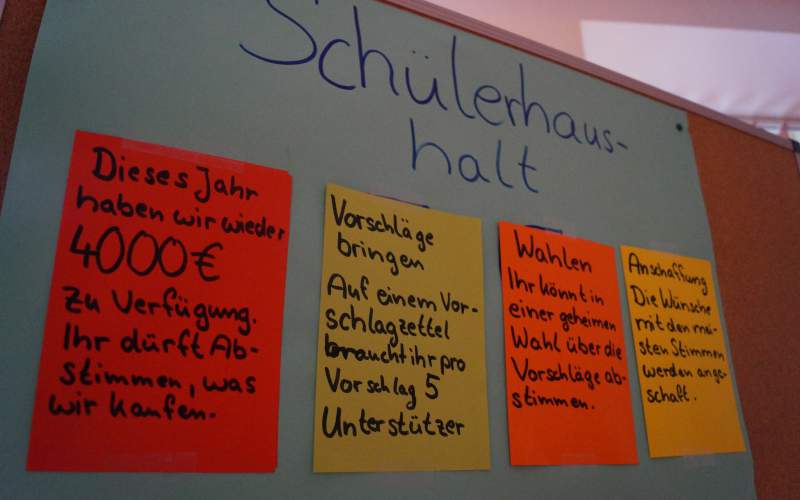 Schülerhaus-
halt
Dieses Jahr
haben wir wieder
4000€
zu Verfügung.
Ihr dürft Ab-
stimmen, was
wir kaufen.
Vorschläge
bringen
Auf einem Vor-
schlagzettel
braucht ihr pro
Vorschlag 5
Unterstützer
Wahlen
Ihr könnt in
einer geheimen
Wahl über die
Vorschläge ab-
stimmen.
Anschaffung
Die Wünsche
mit den mei-
sten Stimmen
werden ange-
schaft.